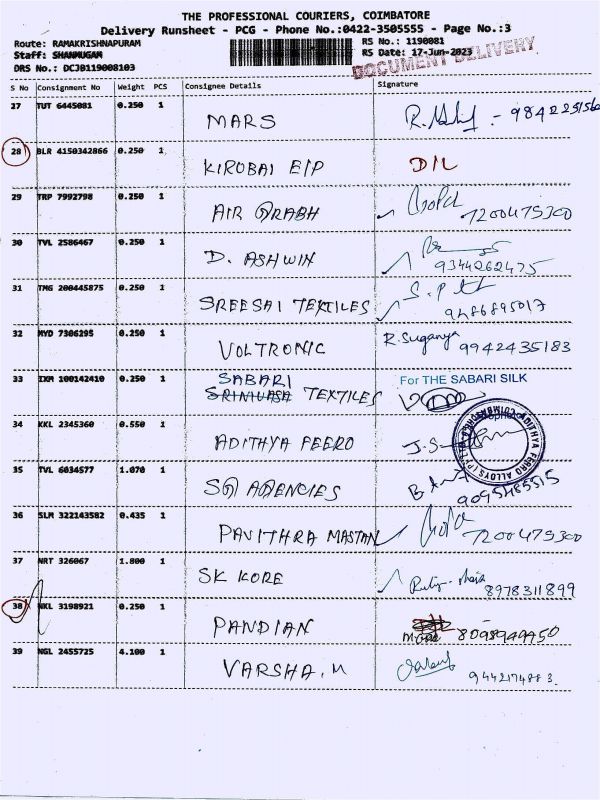 THE PROFESSIONAL COURIERS, COIMBATORE
Delivery Runsheet - PCG - Phone No.:0422-3505555 - Page No.:3
Route: RAMAKRISHNAPURAM RS No.: 1190081
Staff: SHANMUGAM RS Date: 17-Jun-2023
DRS No.: DCJB119008103
DOCUMENT DELIVERY
S No Consignment No Weight PCS Consignee Details Signature
27 TUT 6445081 0.250 1 MARS
28 BLR 4150342866 0.250 1 KIROBAI E/P D/L
29 TRP 7992798 0.250 1 AIR ARABH Gopal 7200475300
30 TVL 2586467 0.250 1 D. ASHWIN 9344262475
31 TMG 200445875 0.250 1 SREESAI TEXTILES 9486895017
32 MYD 7306295 0.250 1 VOLTRONIC R. Suganya 9942435183
33 IXM 100142410 0.250 1 SABARI TEXTILES For THE SABARI SILK
34 KKL 2345360 0.550 1 ADITHYA FERRO
ADITHYA FERRO ALLOYS (P) LTD COIMBATORE
35 TVL 6034577 1.070 1 SG AGENCIES 9095485515
36 SLM 322143582 0.435 1 PAVITHRA MASTAN 7200475300
37 NRT 326067 1.800 1 SK KORE 8978311899
38 NKL 3198921 0.250 1 PANDIAN 8098949950
39 NGL 2455725 4.100 1 VARSHA.M 9442174883